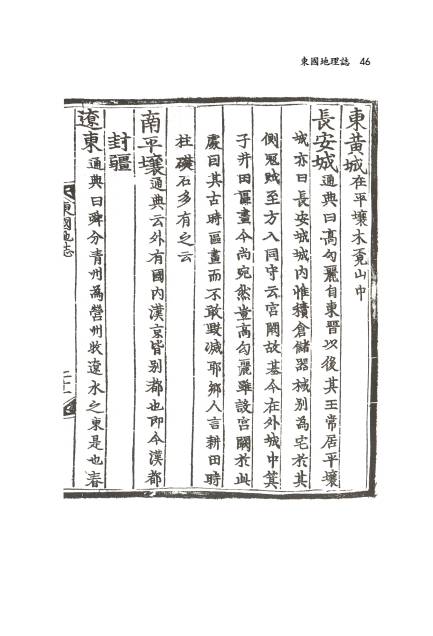 東國地理誌 46
東黃城在平壤木覓山中
長安城通典曰高句麗自東晉以後其王常居平壤
城亦曰長安城城內惟積倉儲器械別爲宅於其
側冦賊至方入同守云宮闕故基今在外城中箕
子井田區畫今尙宛然豈高句麗雖設宮闕於此
處曰其古時區畫而不敢毀滅耶鄕人言耕田時
柱礎石多有之云
南平壤通典云外有國內漢京皆別都也即今漢都
封疆
遼東通典曰舜分靑州爲營州牧遼水之東是也春
東國地誌
二十